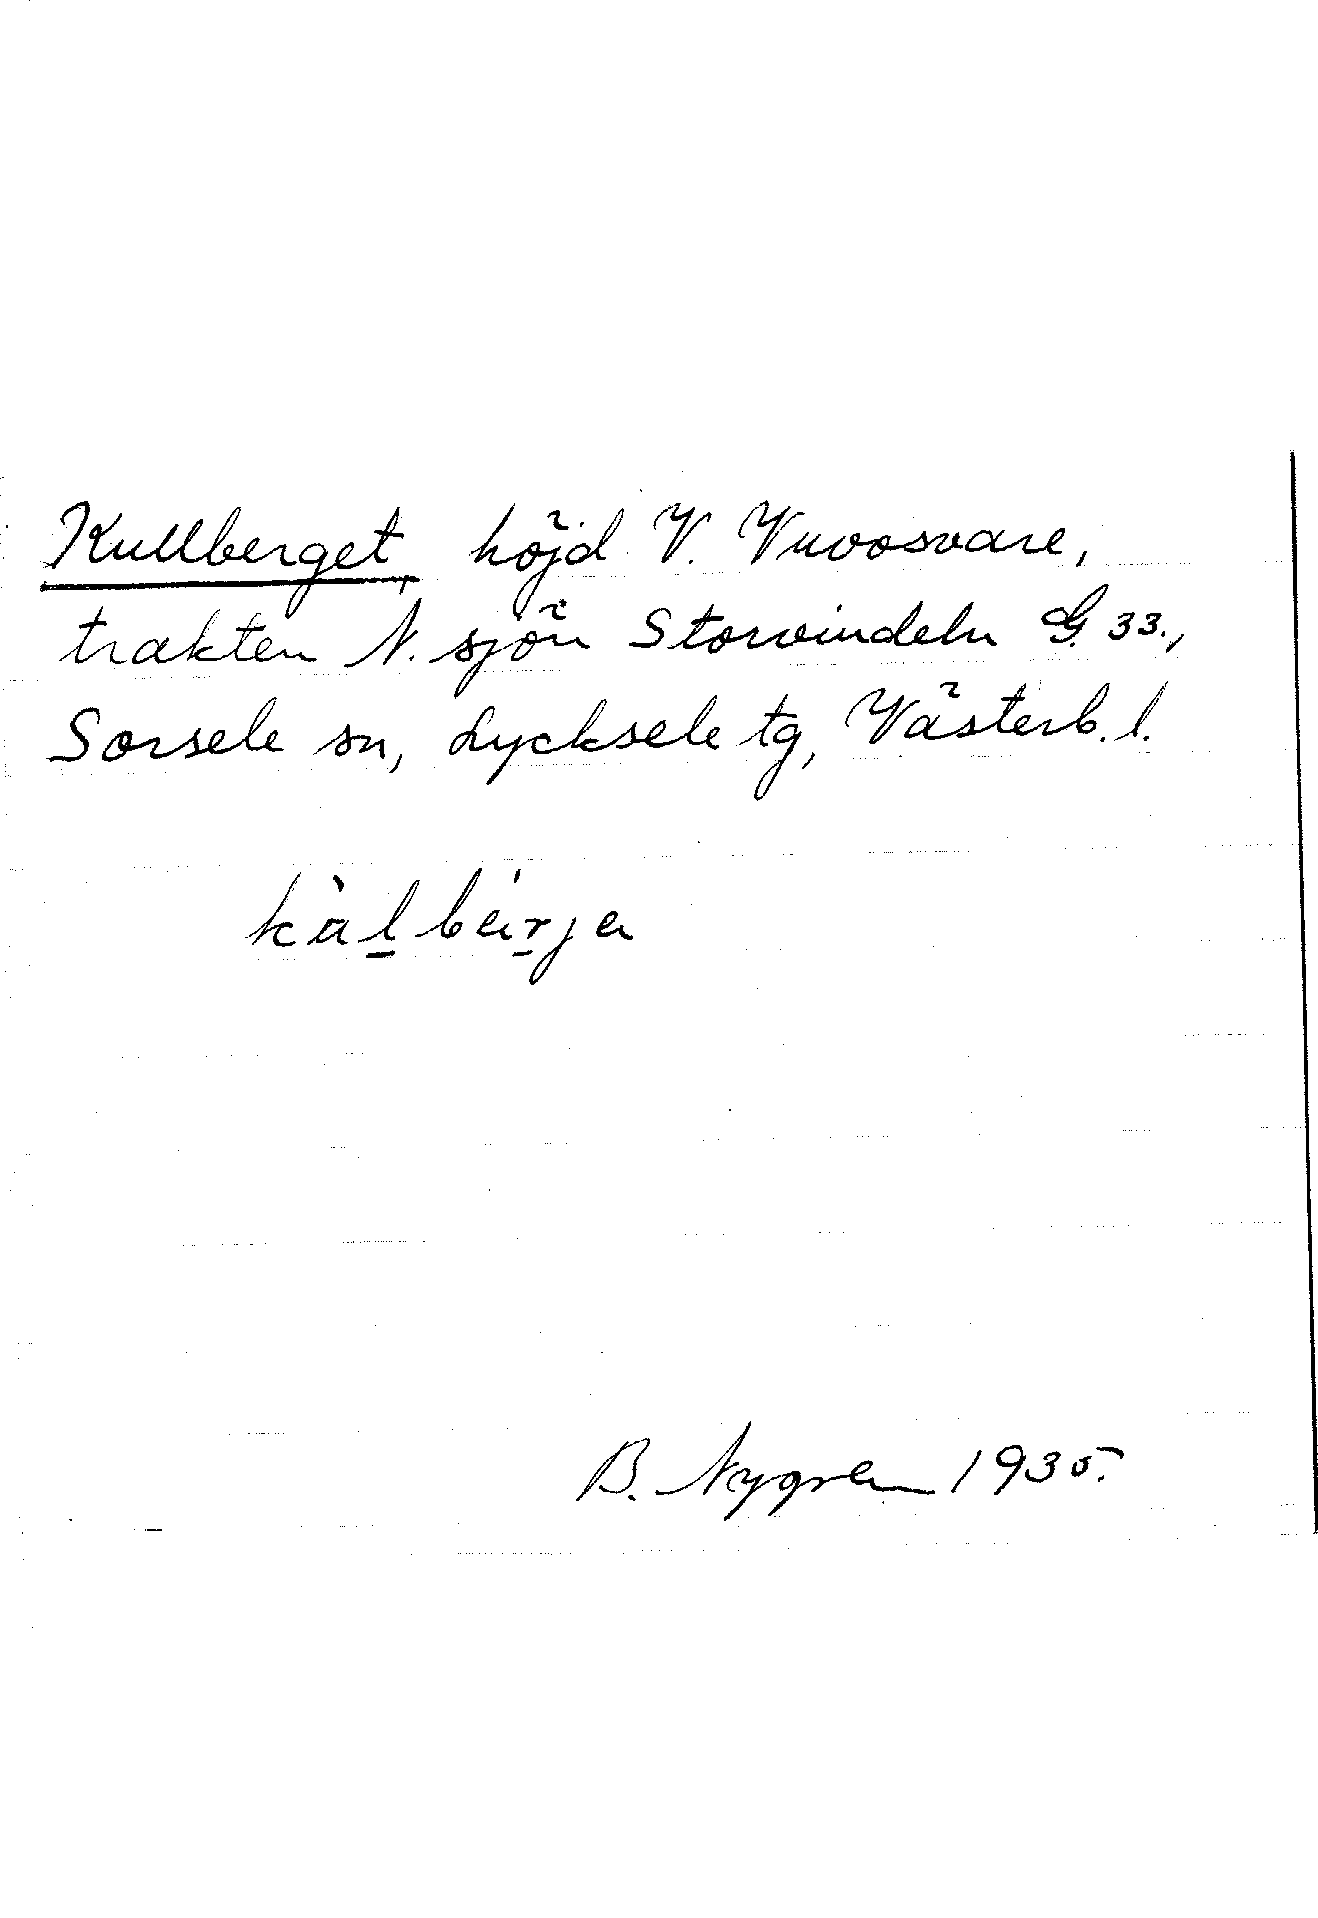 Kullberget, höjd V. Vuvosvare,
trakten N. sjön Storvindeln G. 33.,
Sorsele sn, Lycksele tg, Västerb. l.
B. Nygren 1935.